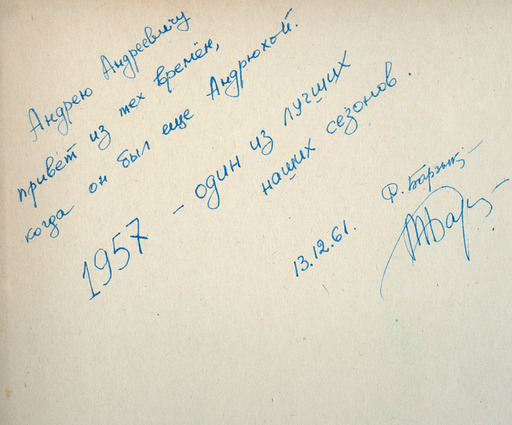 Андрею Андреевичу
привет из тех времён,
когда он был еще Андрюхой.
1957 - один из лучших
наших сезонов.
13.12.61.